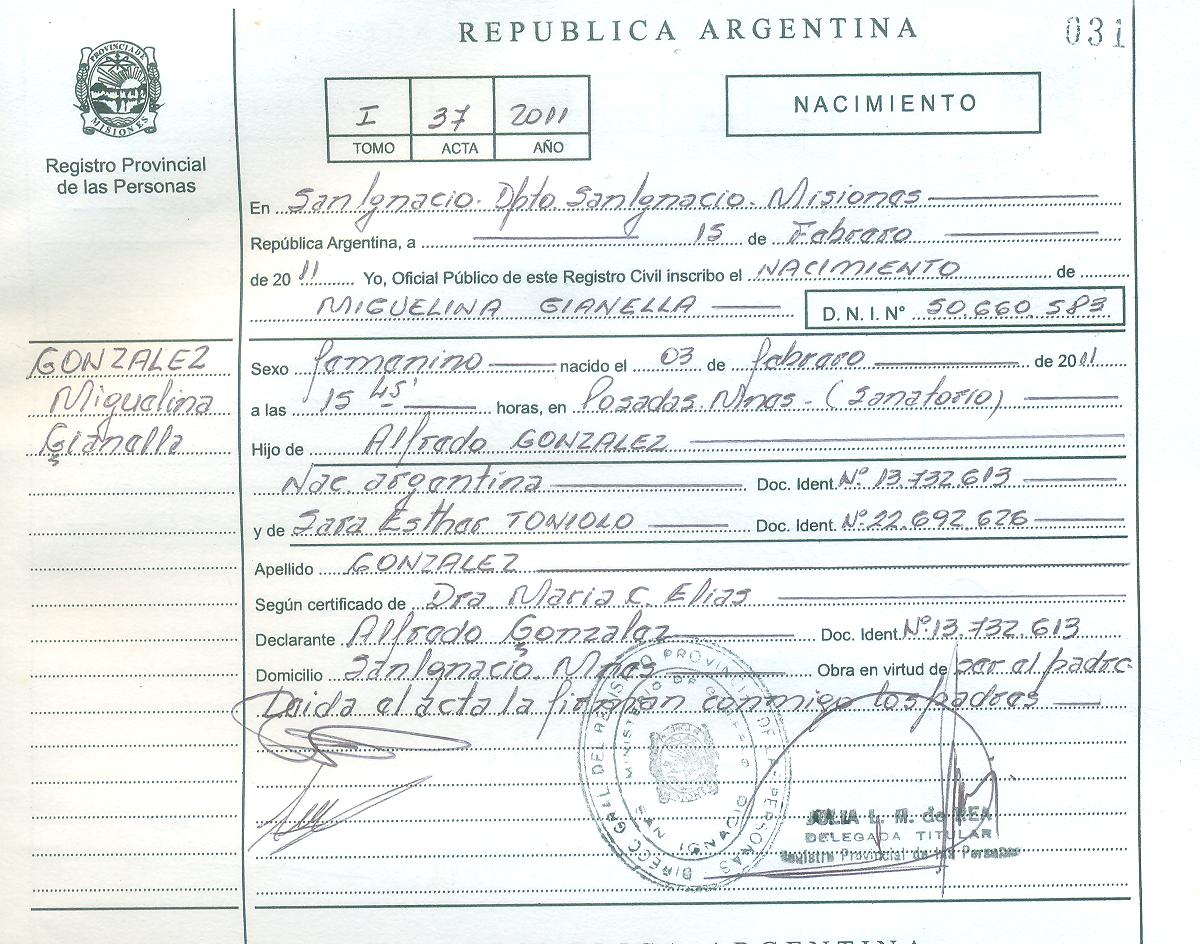 REPUBLICA ARGENTINA
031
PROVINCIA DE MISIONES
Registro Provincial
de las Personas
I 37 2011
TOMO ACTA AÑO
NACIMIENTO
En San Ignacio. Dpto. San Ignacio. Misiones
República Argentina, a 15 de Febrero
de 2011 Yo, Oficial Público de este Registro Civil inscribo el NACIMIENTO de
MIGUELINA GIANELLA D. N. I. Nº 50.660.583
GONZALEZ
Miguelina
Gianella
Sexo femenino nacido el 03 de febrero de 2011
a las 15 45' horas, en Posadas. Mnes. (Sanatorio)
Hijo de Alfredo GONZALEZ
Nac. argentina Doc. Ident. Nº 13.732.613
y de Sara Esther TONIOLO Doc. Ident. Nº 22.692.626
Apellido GONZALEZ
Según certificado de Dra Maria C. Elias
Declarante Alfredo Gonzalez Doc. Ident. Nº 13.732.613
Domicilio San Ignacio. Mnes Obra en virtud de ser el padre
Leida el acta la firman conmigo los padres
DIRECC. GRAL. DEL REGISTRO PROVINCIAL DE LAS PERSONAS
MINISTERIO DE GOBIERNO
SAN IGNACIO
JULIA L. M. de REA
DELEGADA TITULAR
Registro Provincial de las Personas